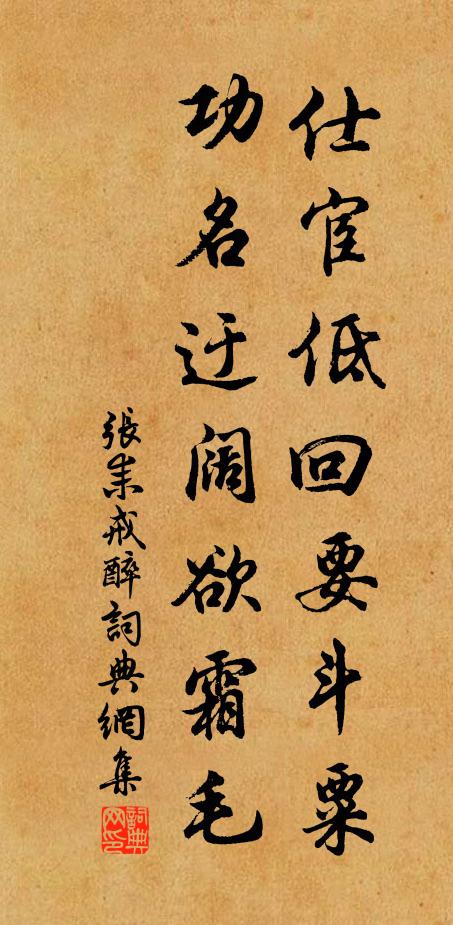 仕宦低回要斗粟
功名迂阔欲霜毛
張耒戒醉詞典網集
詞典网印